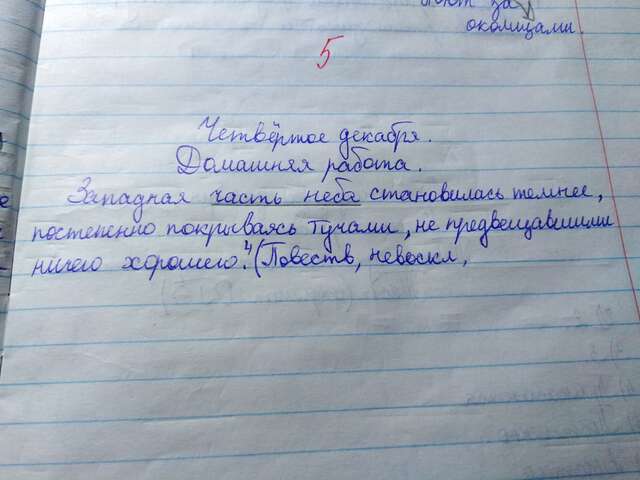 за
околицами.
5
Четвёртое декабря.
Домашняя работа.
Западная часть неба становилась темнее,
постепенно покрываясь тучами, не предвещавшими
ничего хорошего.⁴ (Повеств, невоскл,